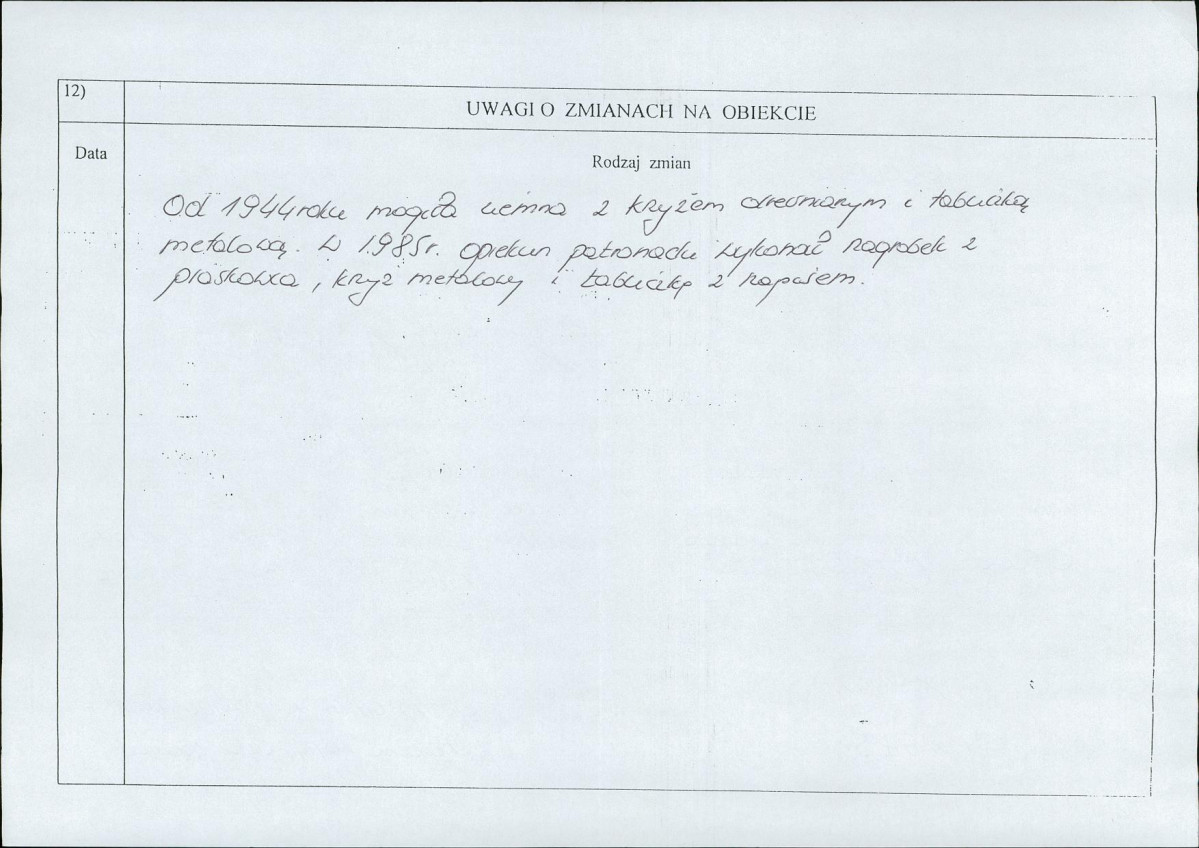 12)
UWAGI O ZMIANACH NA OBIEKCIE
Data
Rodzaj zmian
Od 1944 roku mogiła ziemna z krzyżem drewnianym i tabliczką
metalową. W 1985r. opiekun patronacki wykonał nagrobek z
piaskowca, krzyż metalowy i tabliczkę z napisem.